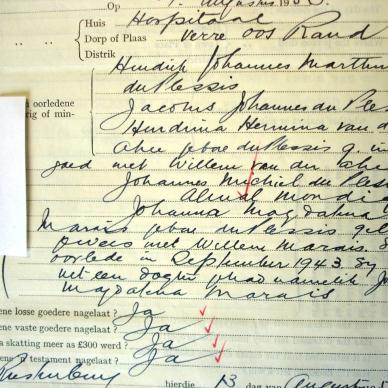 Op Augustus 19
Huis Hospitaal
Dorp of Plaas Verre Oos Rand
Distrik
Hendrik Johannes Marthin
du Plessis
a oorledene Jacobus Johannes du Ples
rig of min- Hendrina Hermina van d
gebore du Plessis g. in
goed met Willem van der
Johannes Michiel du Ples
Almal mondig
Johanna Magdalena
Marais gebore du Plessis
met Willem Marais. S
oorlede in September 1943. Sy
net een dogter gehad namelik Jo
Magdalena Marais
ene losse goedere nagelaat? Ja
ene vaste goedere nagelaat? Ja
a skatting meer as £300 werd? Ja
ene 'n testament nagelaat? Ja
hierdie 13 dag van Augustus